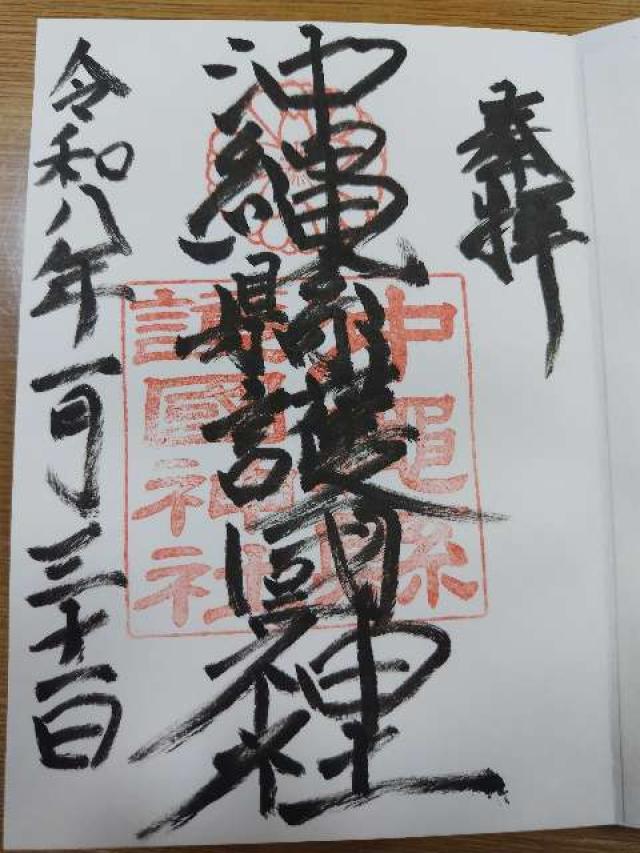 奉拝
沖縄縣護國神社
沖縄縣
護國神社
令和八年一月三十一日